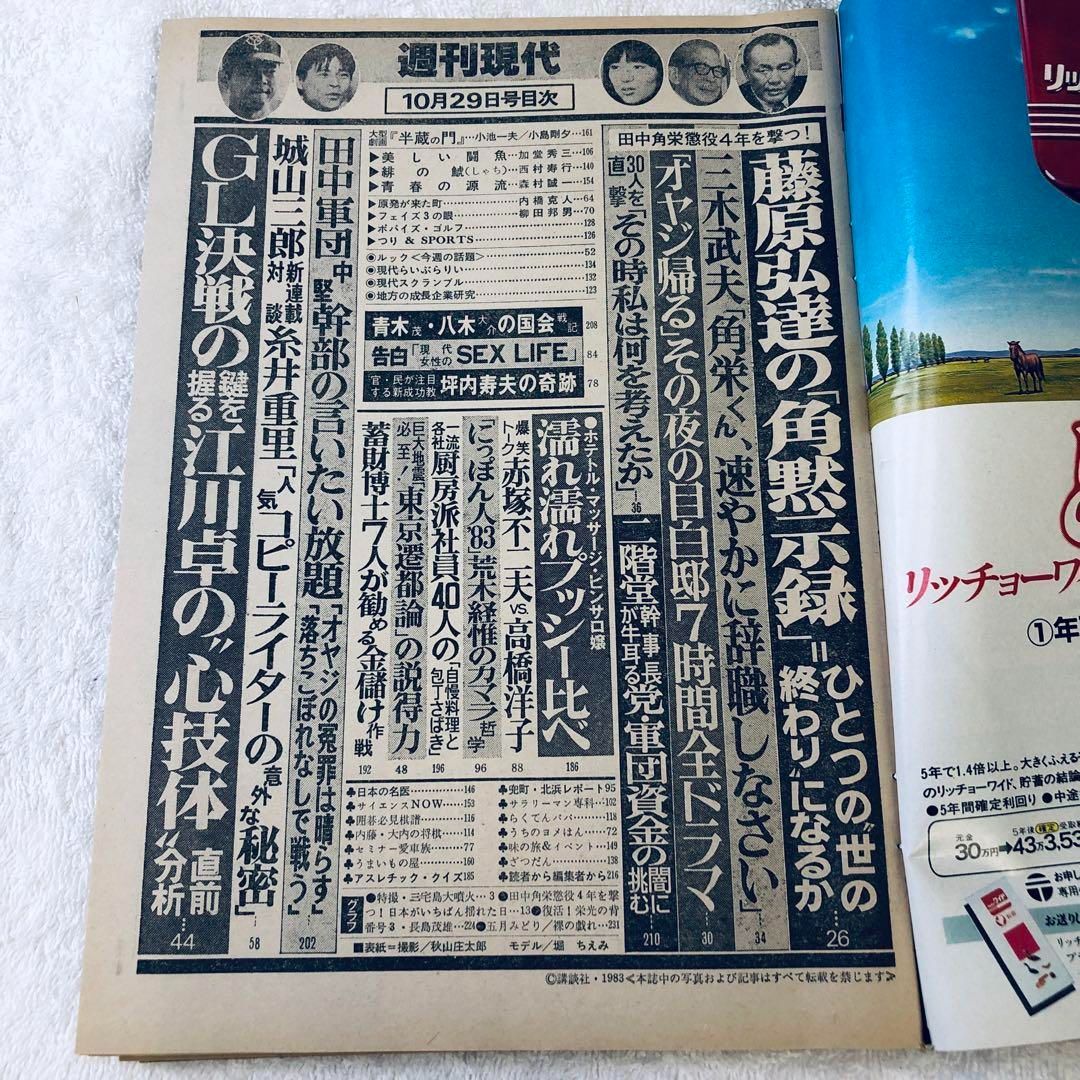 週刊現代
10月29日号目次
田中角栄懲役4年を撃つ!
藤原弘達の「角黙示録」=ひとつの"世の終わり"になるか 26
三木武夫「角栄くん、速やかに辞職しなさい」 34
「オヤジ帰る」その夜の目白邸7時間全ドラマ 30
30人を直撃「その時私は何を考えたか」 36
二階堂幹事長が牛耳る党・軍団資金の闇に挑む 210
大型劇画『半蔵の門』…小池一夫/小島剛夕…161
▶美しい闘魚…加堂秀三…106
▶緋の鯱(しゃち)…西村寿行…140
▶青春の源流…森村誠一…154
▶原発が来た町…内橋克人…64
▶フェイズ3の眼…柳田邦男…70
▶ポパイズ・ゴルフ…128
▶つり & SPORTS…126
●ルック<今週の話題>…52
●現代らいぶらりい…134
●現代スクランブル…132
●地方の成長企業研究…123
青木茂・八木大介の国会戦記 208
告白「現代女性のSEX LIFE」 84
官・民が注目する新成功教 坪内寿夫の奇跡 78
●ホテトル・マッサージ・ピンサロ嬢
濡れ濡れプッシー比べ 186
爆笑トーク 赤塚不二夫vs.高橋洋子 88
「にっぽん人'83」荒木経惟のカマラ哲学 96
一流各社厨房派社員40人の「自慢料理と包丁さばき」 196
巨大地震必至!「東京遷都論」の説得力 48
蓄財博士7人が勧める金儲け作戦 192
田中軍団中堅幹部の言いたい放題「オヤジの冤罪は晴らす」「落ちこぼれなしで戦う」 202
城山三郎新連載対談 糸井重里「人気コピーライターの意外な秘密」 58
GL決戦の鍵を握る江川卓の"心技体"直前分析 44
♣兜町・北浜レポート95
♣サラリーマン専科…102
♣らくてんパパ…118
♣うちのヨメはん…72
♣味の旅&イベント…149
♣ざつだん…138
♣読者から編集者から216
♣日本の名医…146
♣サイエンスNOW…153
♣囲碁必見棋譜…116
♣内藤・大内の将棋…114
♣セミナー愛車族…77
♣うまいもの屋…160
♣アスレチック・クイズ185
グラフ
●特撮・三宅島大噴火…3●田中角栄懲役4年を撃
つ!日本がいちばん揺れた日…13●復活!栄光の背
番号3・長島茂雄…224●五月みどり/裸の戯れ…231
■表紙=撮影/秋山庄太郎 モデル/堀 ちえみ
©講談社・1983<本誌中の写真および記事はすべて転載を禁じます>
リッ
リッチョーワ
①年
5年で1.4倍以上。大きくふえる
のリッチョーワイド、貯蓄の結論
●5年間確定利回り●中途
元金 30万円→ 5年後確定受取 43万3,53
お申し
専用
お送りし
リッチ